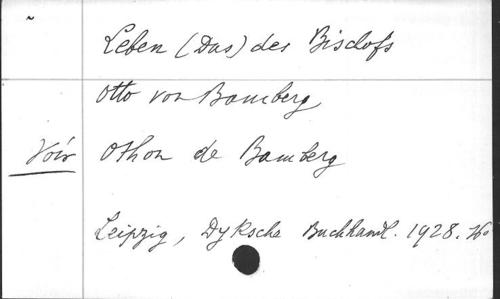 Leben (Das) des Bischofs
Otto von Bamberg
Voir Othon de Bamberg
Leipzig, Dyksche Buchhandl. 1928.